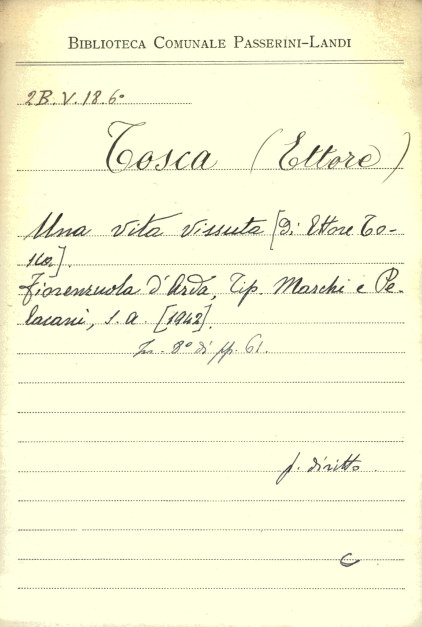 BIBLIOTECA COMUNALE PASSERINI-LANDI
2B.V.18.6º
Tosca (Ettore)
Una vita vissuta [Di Ettore To-
sca].
Fiorenzuola d'Arda, Tip. Marchi e Pe-
lacani, s.a. [1942].
In-8º di pp. 61.
p. diritto
C